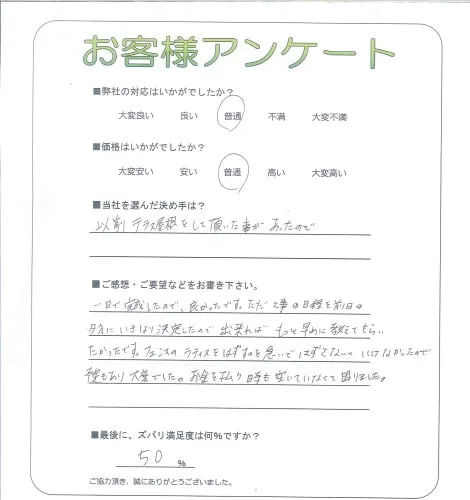 お客様アンケート
■弊社の対応はいかがでしたか?
大変良い 良い 普通 不満 大変不満
■価格はいかがでしたか?
大変安い 安い 普通 高い 大変高い
■当社を選んだ決め手は?
以前 テラス屋根をして頂いた事が あったので
■ご感想・ご要望などをお書き下さい。
一日で完成したので、良かったです。ただ 工事の日程を前日の
夕方に いきなり決定したので 出来れば もっと早めに教えてもらい
たかったです。フェンスの ラティスをはずすのを急いで はずさないと いけなかったので
雨もあり 大変でした。お金を払う 日時も 空いていなくて 困りました。
■最後に、ズバリ満足度は何%ですか?
50 %
ご協力頂き、誠にありがとうございました。